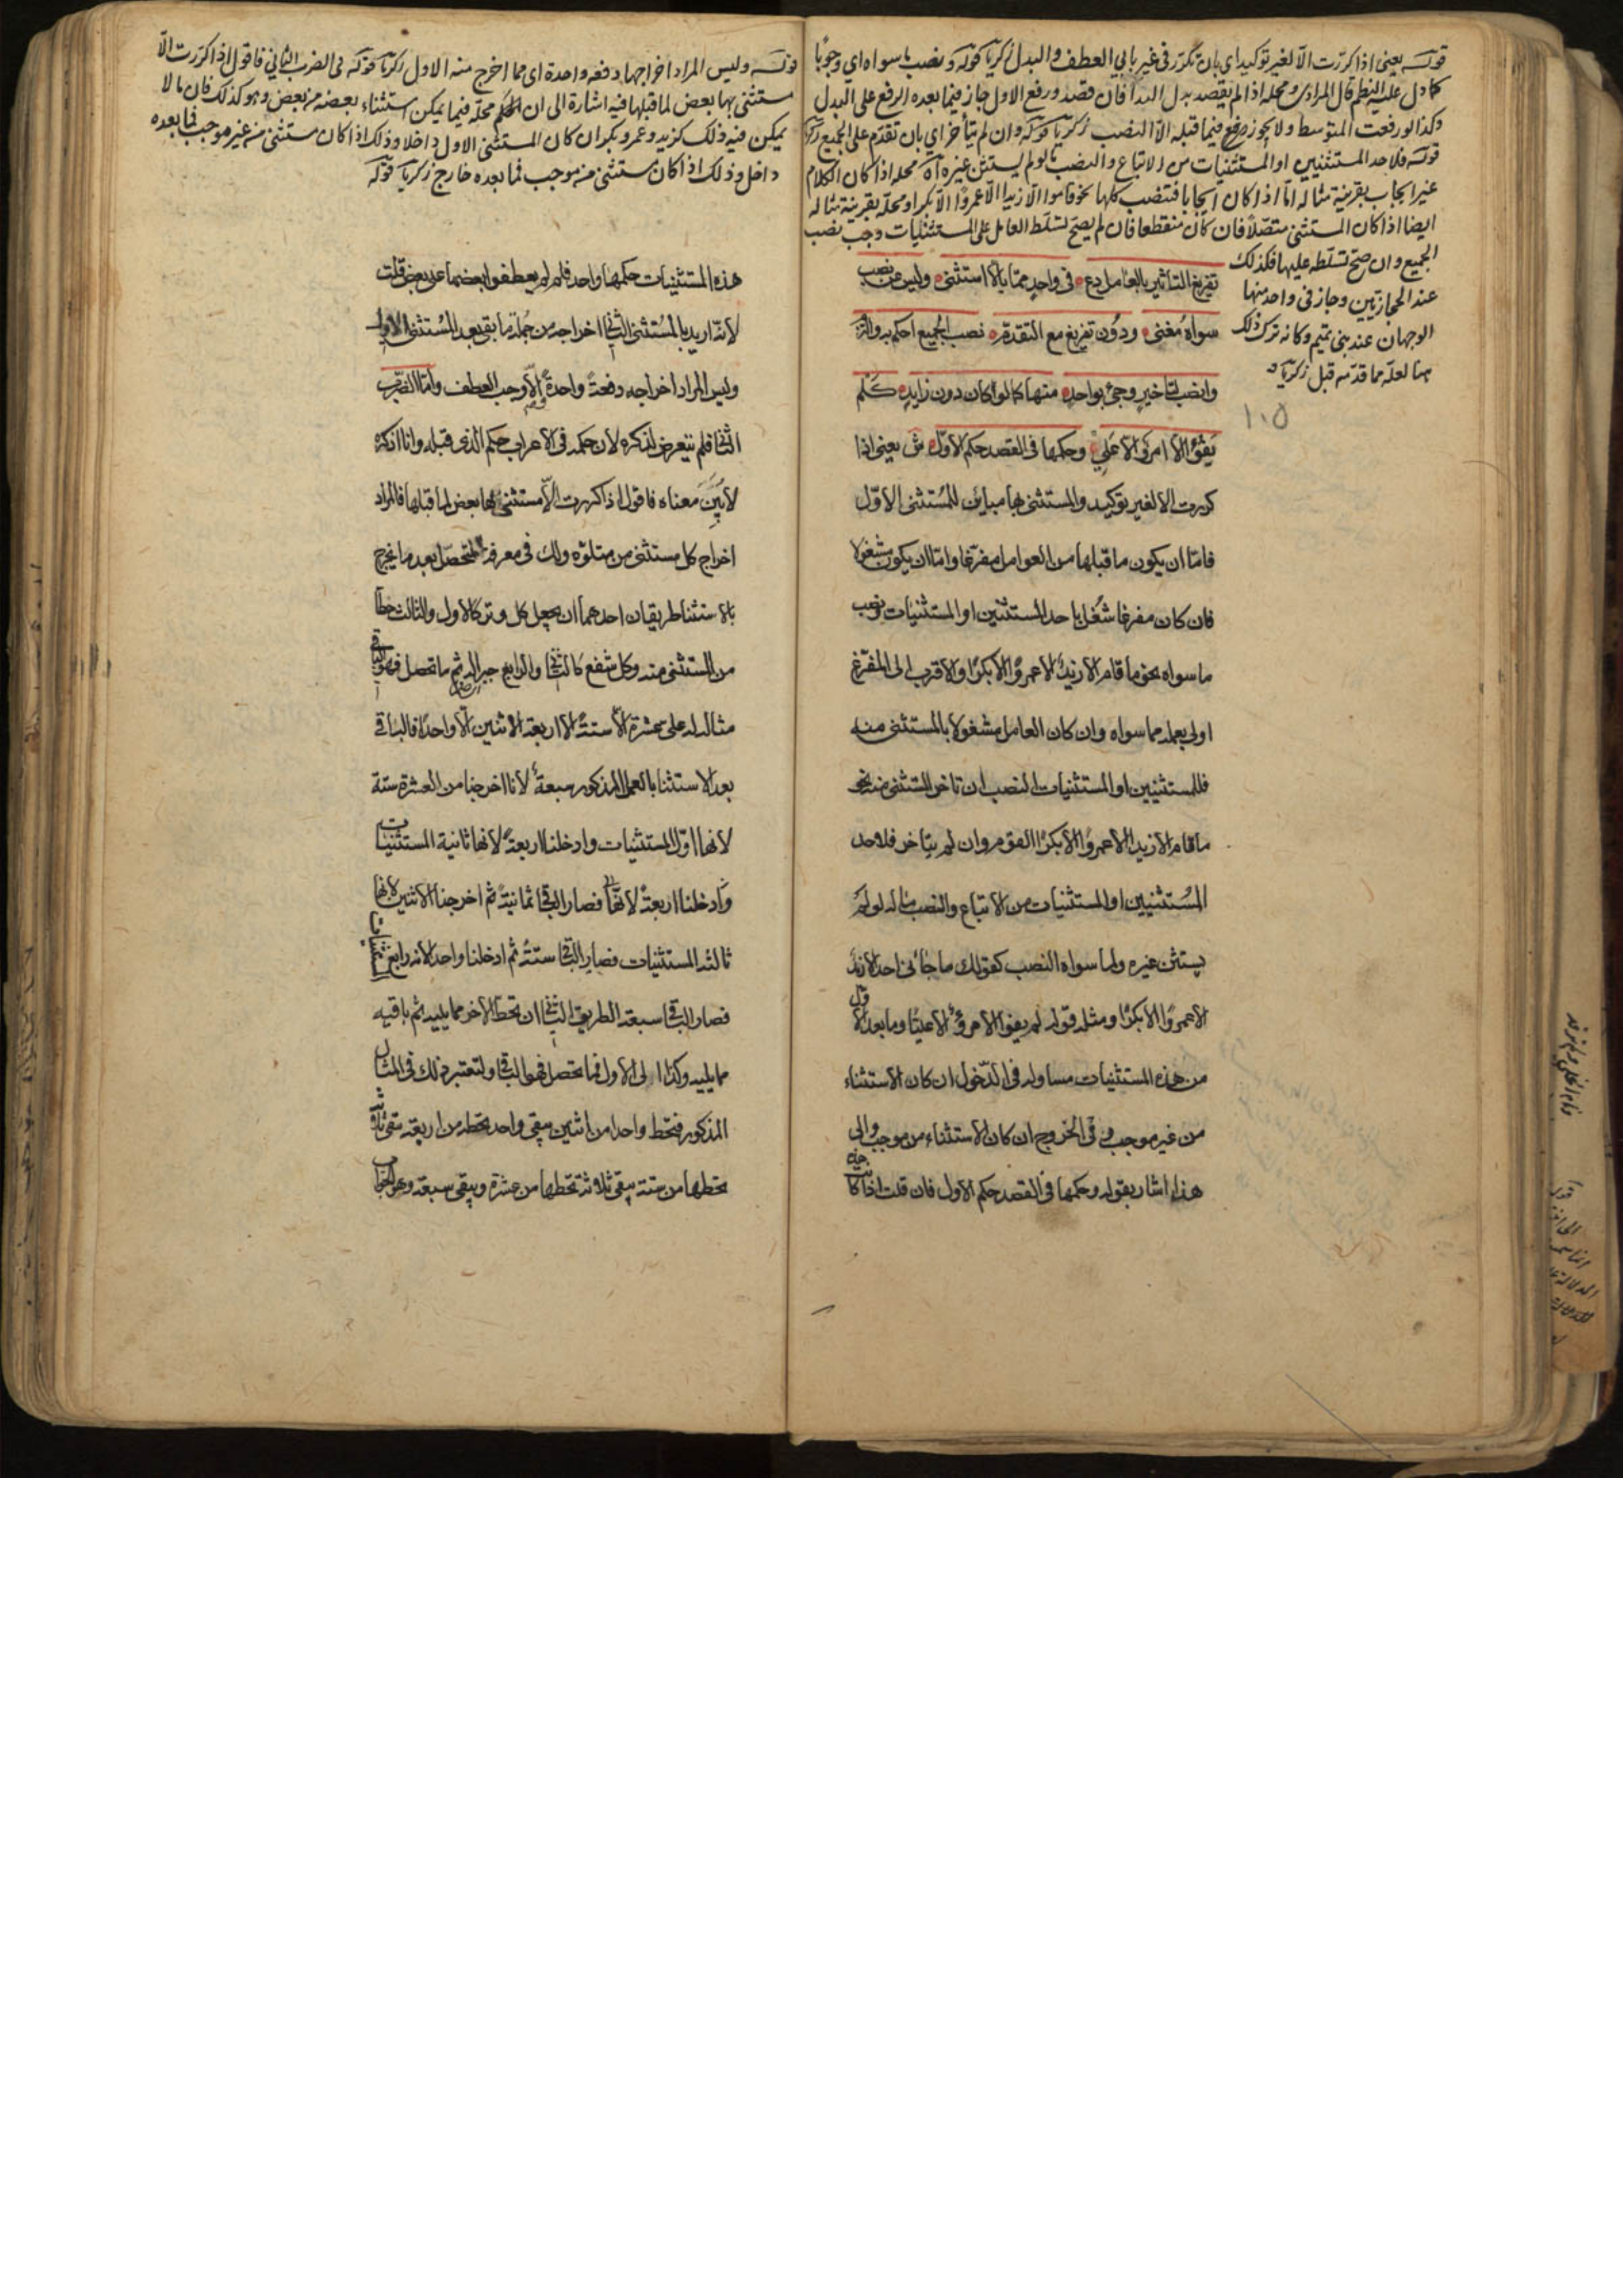 قوله يعني اذا كررت الا لغير توكيد اي بان تكرر في غير بابي العطف والبدل زكريا قوله ونصب ما سواه اي وجوبا
كما دل عليه النظم قال المرادي ومحله اذا لم يقصد بدل البدا فان قصد ورفع الاول جاز فيما بعده الرفع على البدل
وكذا لو رفعت المتوسط ولا يجوز رفع فيما قبله الا النصب زكريا قوله وان لم يتأخر اي بان تقدم على الجميع زكريا
قوله فلاحد المستثنيين او المستثنيات من الاتباع والنصب ما لو لم يستثن غيره اه محله اذا كان الكلام
غير ايجاب بقرينة مثاله اما اذا كان ايجابا فتنصب كلها نحو قاموا الا زيدا الا عمروا الا بكرا ومحله بقرينة مثاله
ايضا اذا كان المستثنى متصلا فان كان منقطعا فان لم يصح تسلط العامل على المستثنيات وجب نصب
الجميع وان صح تسلطه عليها فكذلك
عند الحجازيين وجاز في واحد منها
الوجهان عند بني تميم وكانه ترك ذلك
هنا لعله مما قدمه قبل زكريا
١٠٥
تفريغ التاثير بالعامل دع في واحد مما بالا استثنى وليس عن نصب
سواه مغنى ودون تفريغ مع التقدم نصب الجميع احكم به والتزم
وانصب لتاخير وجئ بواحد منها كما لو كان دون زايد كلم
يفوا الا امرؤ الا علي وحكمها في القصد حكم الاول ش يعني اذا
كررت الا لغير توكيد والمستثنى بها مباين للمستثنى الاول
فاما ان يكون ما قبلها من العوامل مفرغا واما ان يكون مشغولا
فان كان مفرغا شغل باحد المستثنيين او المستثنيات ونصب
ما سواه نحو ما قام الا زيد الا عمروا الا بكرا والاقرب الى المفرغ
اولى بعمله مما سواه وان كان العامل مشغولا بالمستثنى منه
فللمستثنيين او المستثنيات النصب ان تاخر المستثنى منه نحو
ما قام الا زيدا الا عمروا الا بكرا القوم وان لم يتاخر فلاحد
المستثنيين او المستثنيات من الاتباع والنصب ما له لو لم
يستثن غيره ولما سواه النصب كقولك ما جائني احد الا زيد
الا عمروا الا بكرا ومثله قوله لم يفوا الا امرؤ الا عليا وما بعد الاول
من هذه المستثنيات مساو له في الدخول ان كان الاستثناء
من غير موجب وفي الخروج ان كان الاستثناء من موجب والى
هذا اشار بقوله وحكمها في القصد حكم الاول فان قلت اذا كانت
قوله وليس المراد اخراجها دفعة واحدة اي مما اخرج منه الاول زكريا قوله في الضرب الثاني فاقول اذا كررت الا
مستثنى بها بعض لما قبلها فيه اشارة الى ان الحكم محله فيما يمكن استثناء بعضه من بعض وهو كذلك فان ما لا
يمكن فيه ذلك كزيد وعمرو وبكر ان كان المستثنى الاول داخلا وذلك اذا كان مستثنى من غير موجب فما بعده
داخل وذلك اذا كان مستثنى من موجب فما بعده خارج زكريا قوله
هذه المستثنيات حكمها واحد فلم لم يعطفوا بعضها على بعض قلت
لانه اريد بالمستثنى الثاني اخراجه من جملة ما بقي بعد المستثنى الاول
وليس المراد اخراجه دفعة واحدة والا وجب العطف واما الضرب
الثاني فلم يتعرض لذكره لان حكمه في الاعراب حكم الذي قبله وانا اذكره
لابين معناه فاقول اذا كررت الا مستثنى بها بعض لما قبلها فالمراد
اخراج كل مستثنى من متلوه ولك في معرفة المتحصل بعد ما يخرج
بالاستثنا طريقان احدهما ان يجعل كل وتر كالاول والثالث حطا
من المستثنى منه وكل شفع كالثاني والرابع جبرا له ثم ما تحصل فهو الباقي
مثاله له علي عشرة الا ستة الا اربعة الا اثنين الا واحدا فالباقي
بعد الاستثنا بالعمل المذكور سبعة لانا اخرجنا من العشرة ستة
لانها اول المستثنيات وادخلنا اربعة لانها ثانية المستثنيات
وادخلنا اربعة لانها فصار الباقي ثمانية ثم اخرجنا الاثنين لانها
ثالثة المستثنيات فصار الباقي ستة ثم ادخلنا واحدا لانه رابع
فصار الباقي سبعة الطريق الثاني ان تحط الاخر مما يليه ثم باقيه
مما يليه وكذا الى الاول فما تحصل فهو الباقي ولتعتبر ذلك في المثال
المذكور فتحط واحدا من اثنين يبقى واحد تحطه من اربعة تبقى ثلاثة
تحطها من ستة يبقى ثلاثة تحطها من عشرة ويبقى سبعة وهو الجواب